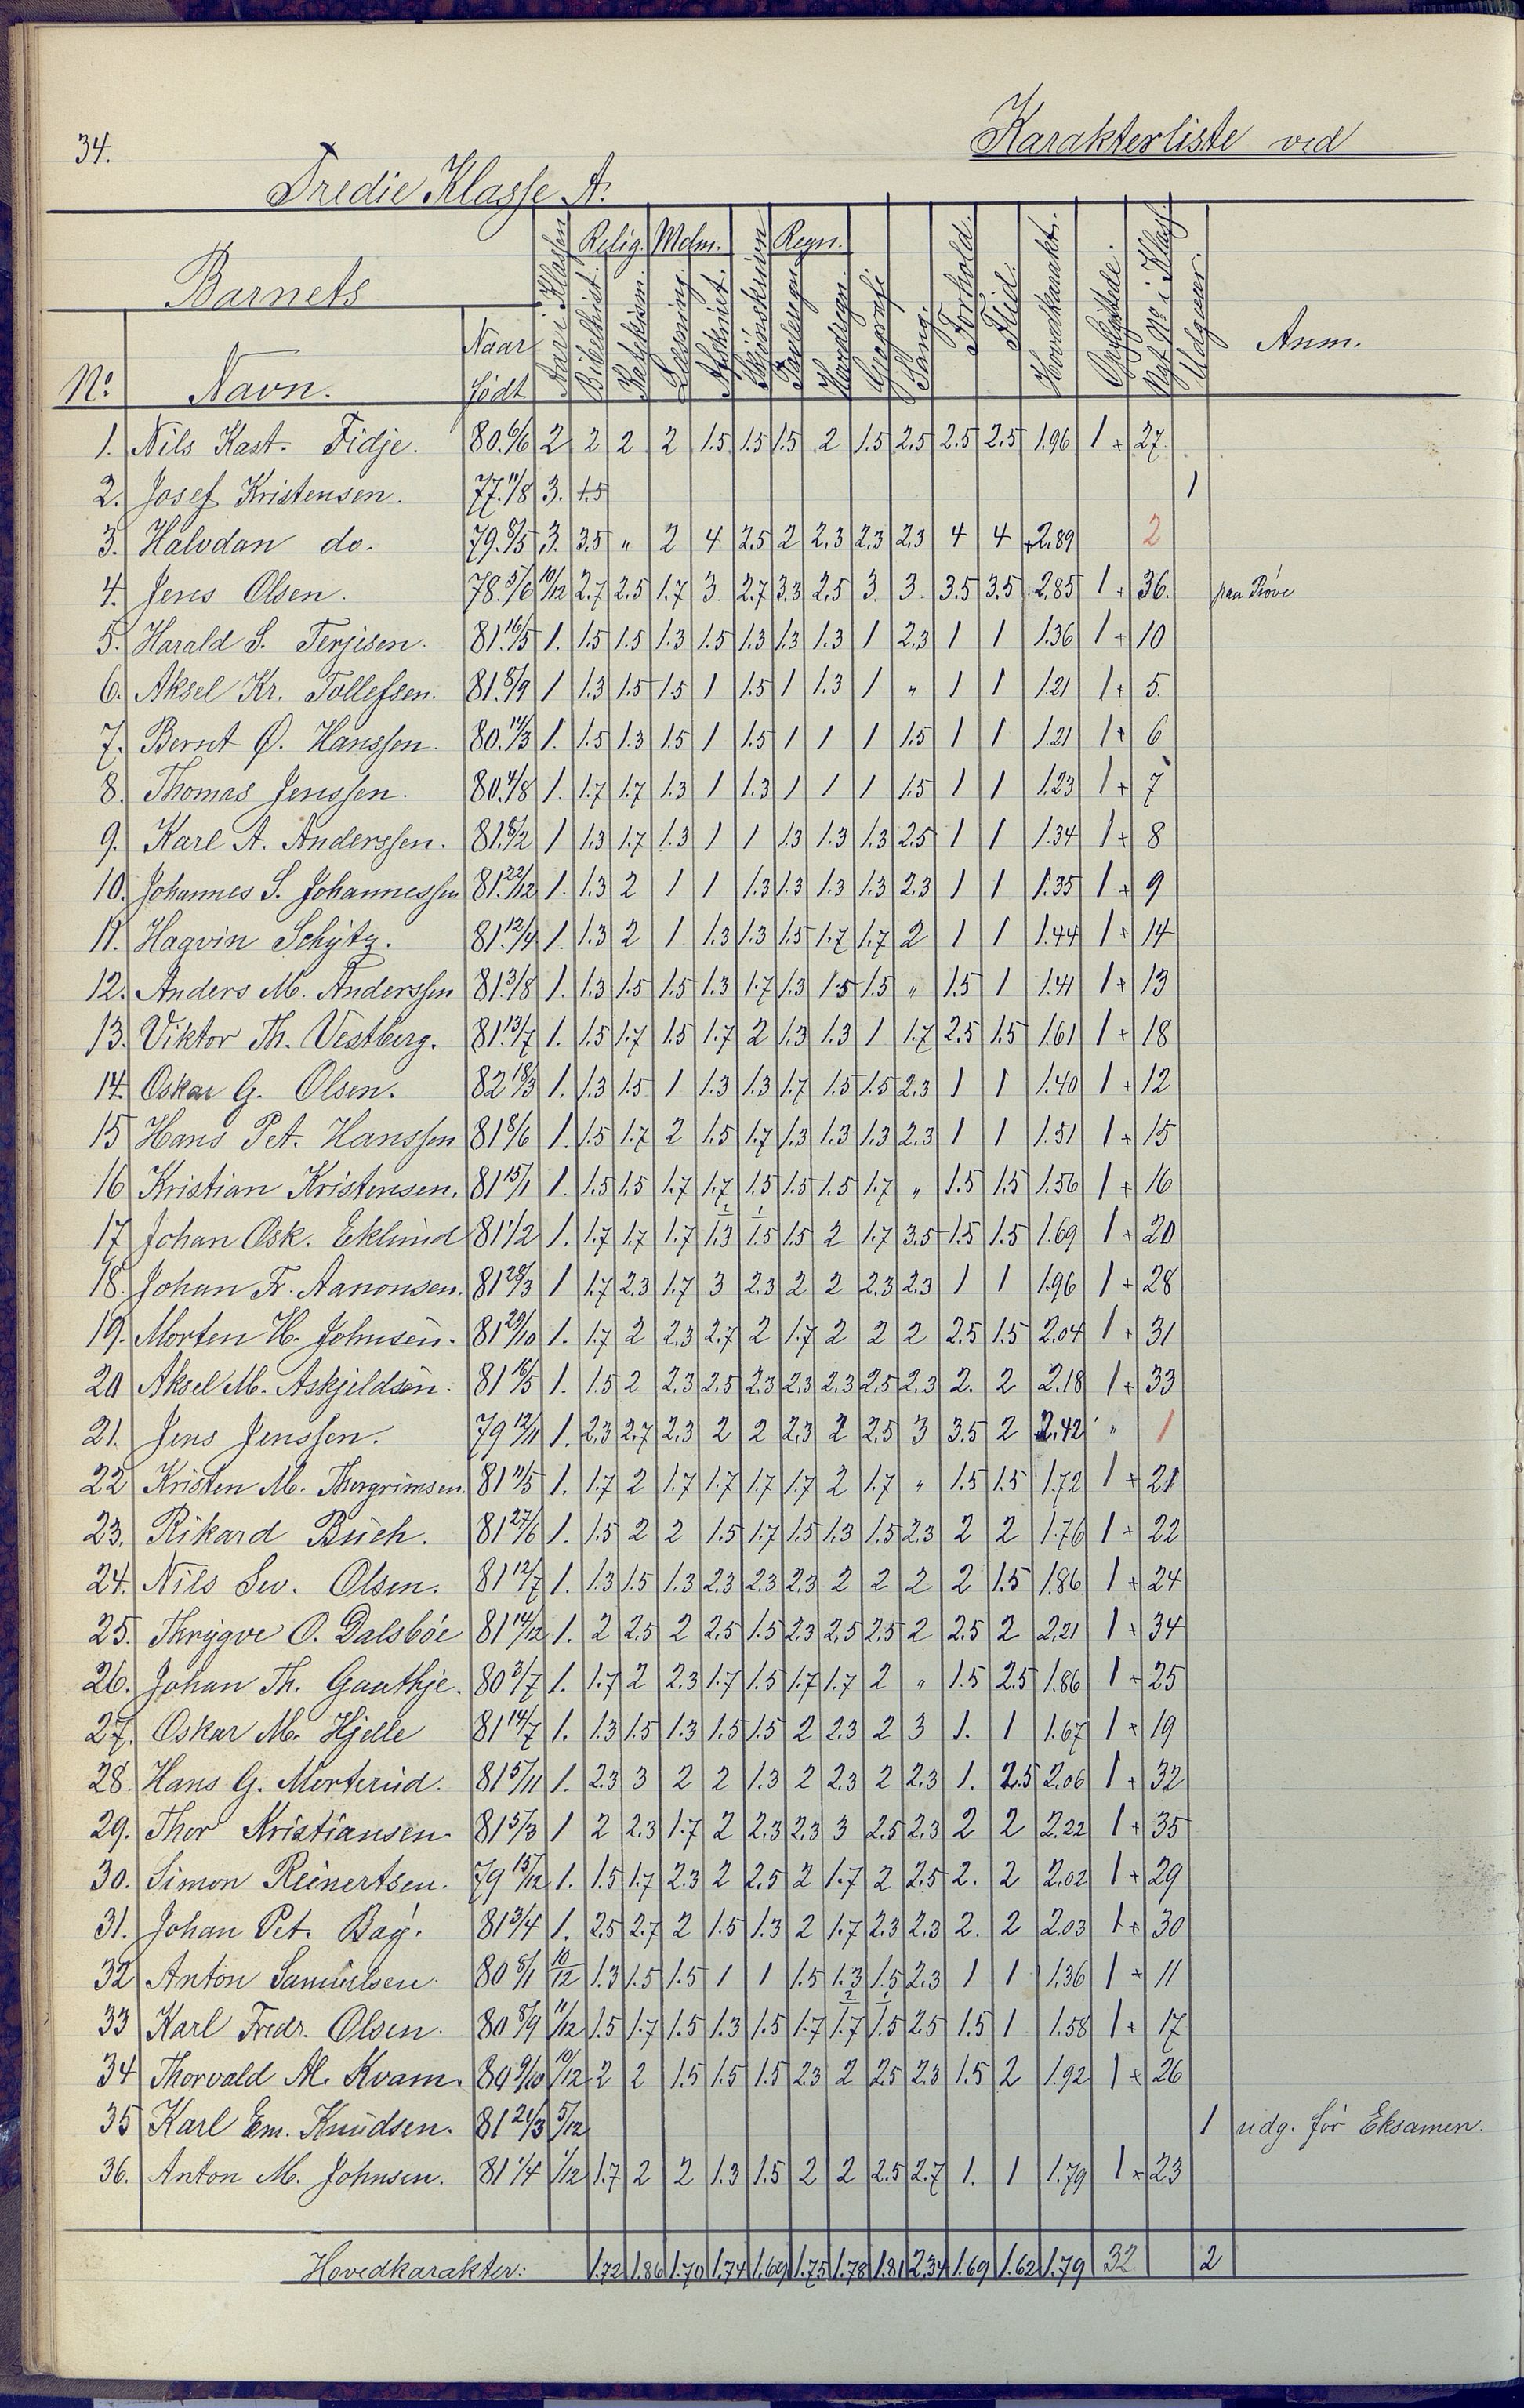 34.
Karakterliste ved
Tredie Klasse A.
Barnets
Aar i Klassen
Relig. Modm. Skjönskriven Regn.
No. Navn. Naar Født Bibelhist. Katekism. Læsning Afskrivt. Tavleregn. Hovedregn. Geografi Sang. Forhold. Flid. Hovedkarakt. Opflyttede. Nyt No. i Klass. Udgaar. Anm.
1. Nils Kast. Fidje. 80.6/6 2 2 2 2 1.5 1.5 1.5 2 1.5 2.5 2.5 2.5 1.96 1 + 27.
2. Josef Kristensen. 77.11/8 3. 1.5 1
3. Halvdan do. 79.8/5 3. 3.5 " 2 4 2.5 2 2.3 2.3 2.3 4 4 +2.89 2
4. Jens Olsen. 78.5/6 10/12 2.7 2.5 1.7 3 2.7 3.3 2.5 3 3 3.5 3.5 2.85 1 + 36. paa Prøve
5. Harald S. Terjesen. 81.16/5 1. 1.5 1.5 1.3 1.5 1.3 1.3 1.3 1 2.3 1 1 1.36 1 + 10
6. Aksel Kr. Tollefsen. 81.8/9 1 1.3 1.5 1.5 1 1.5 1 1.3 1 " 1 1 1.21 1 + 5.
7. Bernt Ø. Hanssen. 80.14/3 1. 1.5 1.3 1.5 1 1.5 1 1 1 1.5 1 1 1.21 1 + 6
8. Thomas Jenssen. 80.4/8 1. 1.7 1.7 1.3 1 1.3 1 1 1 1.5 1 1 1.23 1 + 7
9. Karl A. Anderssen. 81.8/2 1 1.3 1.7 1.3 1 1 1.3 1.3 1.3 2.5 1 1 1.34 1 + 8
10. Johannes S. Johannessen 81.22/12 1. 1.3 2 1 1 1.3 1.3 1.3 1.3 2.3 1 1 1.35 1 + 9
11. Hagvin Schytz. 81.12/4 1. 1.3 2 1 1.3 1.3 1.5 1.7 1.7 2 1 1 1.44 1 + 14
12. Anders M. Anderssen 81.3/8 1. 1.3 1.5 1.5 1.3 1.7 1.3 1.5 1.5 " 1.5 1 1.41 1 + 13
13. Viktor Th. Vestberg. 81.13/7 1. 1.5 1.7 1.5 1.7 2 1.3 1.3 1 1.7 2.5 1.5 1.61 1 + 18
14. Oskar G. Olsen. 82 18/3 1. 1.3 1.5 1 1.3 1.3 1.7 1.5 1.5 2.3 1 1 1.40 1 + 12
15 Hans Pet. Hanssen 81 8/6 1. 1.5 1.7 2 1.5 1.7 1.3 1.3 1.3 2.3 1 1 1.51 1 + 15
16 Kristian Kristensen. 81 15/1 1. 1.5 1.5 1.7 1.7 1.5 1.5 1.5 1.7 " 1.5 1.5 1.56 1 + 16
17 Johan Osk. Eklund 81 1/2 1. 1.7 1.7 1.7 1.3 1.5 1.5 2 1.7 3.5 1.5 1.5 1.69 1 + 20
18. Johan Fr. Aanonsen. 81 28/3 1 1.7 2.3 1.7 3 2.3 2 2 2.3 2.3 1 1 1.96 1 + 28
19. Morten H. Johnsen. 81 29/10 1. 1.7 2 2.3 2.7 2 1.7 2 2 2 2.5 1.5 2.04 1 + 31
20 Aksel M. Askjeldsen. 81 16/5 1. 1.5 2 2.3 2.5 2.3 2.3 2.3 2.5 2.3 2. 2 2.18 1 + 33
21. Jens Jenssen. 79 12/11 1. 2.3 2.7 2.3 2 2 2.3 2 2.5 3 3.5 2 2.42 " 1
22 Kristen M. Thorgrimsen. 81 11/5 1. 1.7 2 1.7 1.7 1.7 1.7 2 1.7 " 1.5 1.5 1.72 1 + 21
23. Rikard Buch. 81 27/6 1. 1.5 2 2 1.5 1.7 1.5 1.3 1.5 2.3 2 2 1.76 1 + 22
24. Nils Sev. Olsen. 81 12/7 1. 1.3 1.5 1.3 2.3 2.3 2.3 2 2 2 2 1.5 1.86 1 + 24
25. Thrygve O. Dalsbøe 81 14/12 1. 2 2.5 2 2.5 1.5 2.3 2.5 2.5 2 2.5 2 2.21 1 + 34
26. Johan Th. Gauthje. 80 3/7 1. 1.7 2 2.3 1.7 1.5 1.7 1.7 2 " 1.5 2.5 1.86 1 + 25
27. Oskar M. Hjelle 81 14/7 1. 1.3 1.5 1.3 1.5 1.5 2 2.3 2 3 1. 1 1.67 1 + 19
28. Hans G. Morterud. 81 5/11 1. 2.3 3 2 2 1.3 2 2.3 2 2.3 1. 2.5 2.06 1 + 32
29. Thor Kristiansen 81 5/3 1 2 2.3 1.7 2 2.3 2.3 3 2.5 2.3 2 2 2.22 1 + 35
30. Simon Reinertsen. 79 15/12 1. 1.5 1.7 2.3 2 2.5 2 1.7 2 2.5 2. 2 2.02 1 + 29
31. Johan Pet. Bag. 81 3/4 1. 2.5 2.7 2 1.5 1.3 2 1.7 2.3 2.3 2. 2 2.03 1 + 30
32 Anton Samuelsen. 80 8/1 10/12 1.3 1.5 1.5 1 1 1.5 1.3 1.5 2.3 1 1 1.36 1 + 11
33 Karl Fredr. Olsen. 80 8/9 11/12 1.5 1.7 1.5 1.3 1.5 1.7 1.7 1.5 2.5 1.5 1 1.58 1 + 17
34 Thorvald M. Kvam. 80 9/10 10/12 2 2 1.5 1.5 1.5 2.3 2 2.5 2.3 1.5 2 1.92 1 + 26
35 Karl Em. Knudsen. 81 21/3 5/12 1 udg. før Eksamen.
36. Anton M. Johnsen. 81 1/4 1/12 1.7 2 2 1.3 1.5 2 2 2.5 2.7 1. 1 1.79 1 + 23
Hovedkarakter: 1.72 1.86 1.70 1.74 1.69 1.75 1.78 1.81 2.34 1.69 1.62 1.79 32 2